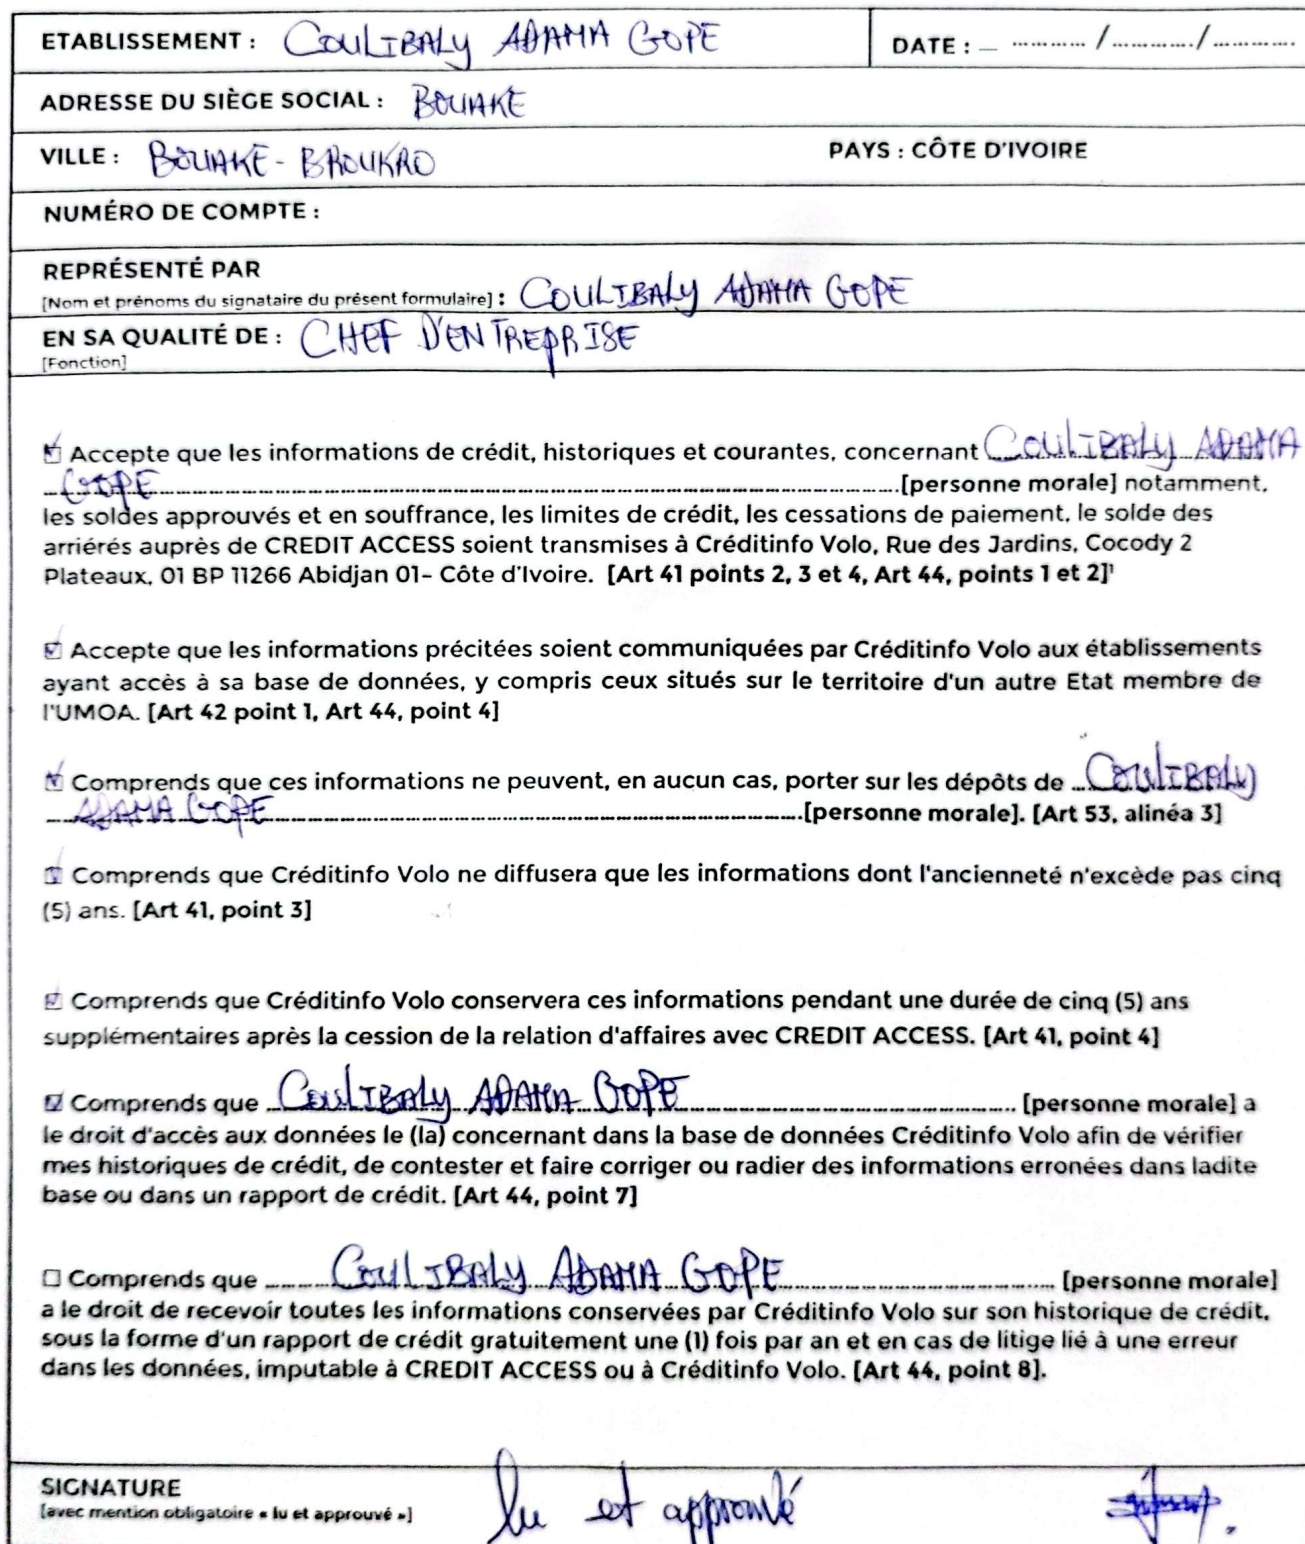 ETABLISSEMENT : COULIBALY ADAMA GOPE DATE : _ ........... / ............/ .............
ADRESSE DU SIÈGE SOCIAL : BOUAKE
VILLE : BOUAKE-BROUKRO PAYS : CÔTE D'IVOIRE
NUMÉRO DE COMPTE :
REPRÉSENTÉ PAR
[Nom et prénoms du signataire du présent formulaire] : COULIBALY ADAMA GOPE
EN SA QUALITÉ DE : CHEF D'ENTREPRISE
[Fonction]
☑ Accepte que les informations de crédit, historiques et courantes, concernant COULIBALY ADAMA
GOPE [personne morale] notamment,
les soldes approuvés et en souffrance, les limites de crédit, les cessations de paiement, le solde des
arriérés auprès de CREDIT ACCESS soient transmises à Créditinfo Volo, Rue des Jardins, Cocody 2
Plateaux, 01 BP 11266 Abidjan 01- Côte d'Ivoire. [Art 41 points 2, 3 et 4, Art 44, points 1 et 2]¹
☑ Accepte que les informations précitées soient communiquées par Créditinfo Volo aux établissements
ayant accès à sa base de données, y compris ceux situés sur le territoire d'un autre Etat membre de
l'UMOA. [Art 42 point 1, Art 44, point 4]
☑ Comprends que ces informations ne peuvent, en aucun cas, porter sur les dépôts de COULIBALY
ADAMA GOPE [personne morale]. [Art 53, alinéa 3]
☑ Comprends que Créditinfo Volo ne diffusera que les informations dont l'ancienneté n'excède pas cinq
(5) ans. [Art 41, point 3]
☑ Comprends que Créditinfo Volo conservera ces informations pendant une durée de cinq (5) ans
supplémentaires après la cession de la relation d'affaires avec CREDIT ACCESS. [Art 41, point 4]
☑ Comprends que COULIBALY ADAMA GOPE [personne morale] a
le droit d'accès aux données le (la) concernant dans la base de données Créditinfo Volo afin de vérifier
mes historiques de crédit, de contester et faire corriger ou radier des informations erronées dans ladite
base ou dans un rapport de crédit. [Art 44, point 7]
☐ Comprends que COULIBALY ADAMA GOPE [personne morale]
a le droit de recevoir toutes les informations conservées par Créditinfo Volo sur son historique de crédit,
sous la forme d'un rapport de crédit gratuitement une (1) fois par an et en cas de litige lié à une erreur
dans les données, imputable à CREDIT ACCESS ou à Créditinfo Volo. [Art 44, point 8].
SIGNATURE
[avec mention obligatoire « lu et approuvé »] lu et approuvé